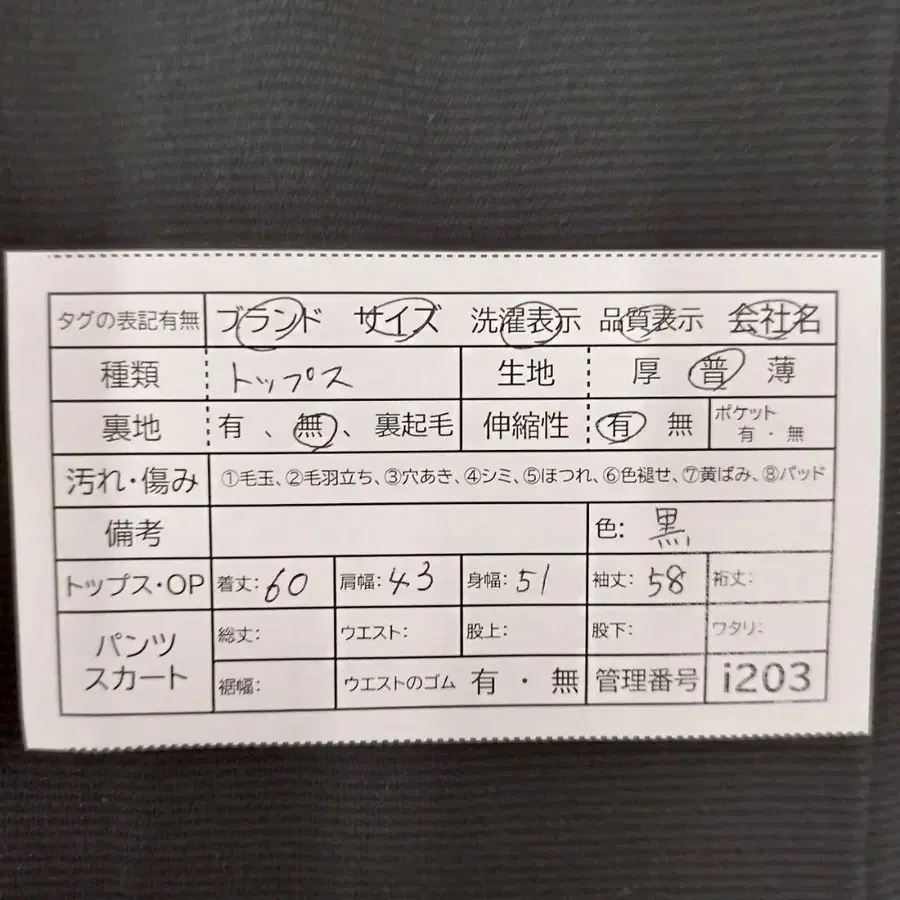 タグの表記有無 ブランド サイズ 洗濯表示 品質表示 会社名
種類 トップス 生地 厚 普 薄
裏地 有 、 無 、 裏起毛 伸縮性 有 無 ポケット 有 ・ 無
汚れ・傷み ①毛玉、②毛羽立ち、③穴あき、④シミ、⑤ほつれ、⑥色褪せ、⑦黄ばみ、⑧パッド
備考 色: 黒
トップス・OP 着丈: 60 肩幅: 43 身幅: 51 袖丈: 58 裄丈:
パンツ スカート 総丈: ウエスト: 股上: 股下: ワタリ:
裾幅: ウエストのゴム 有 ・ 無 管理番号 i203